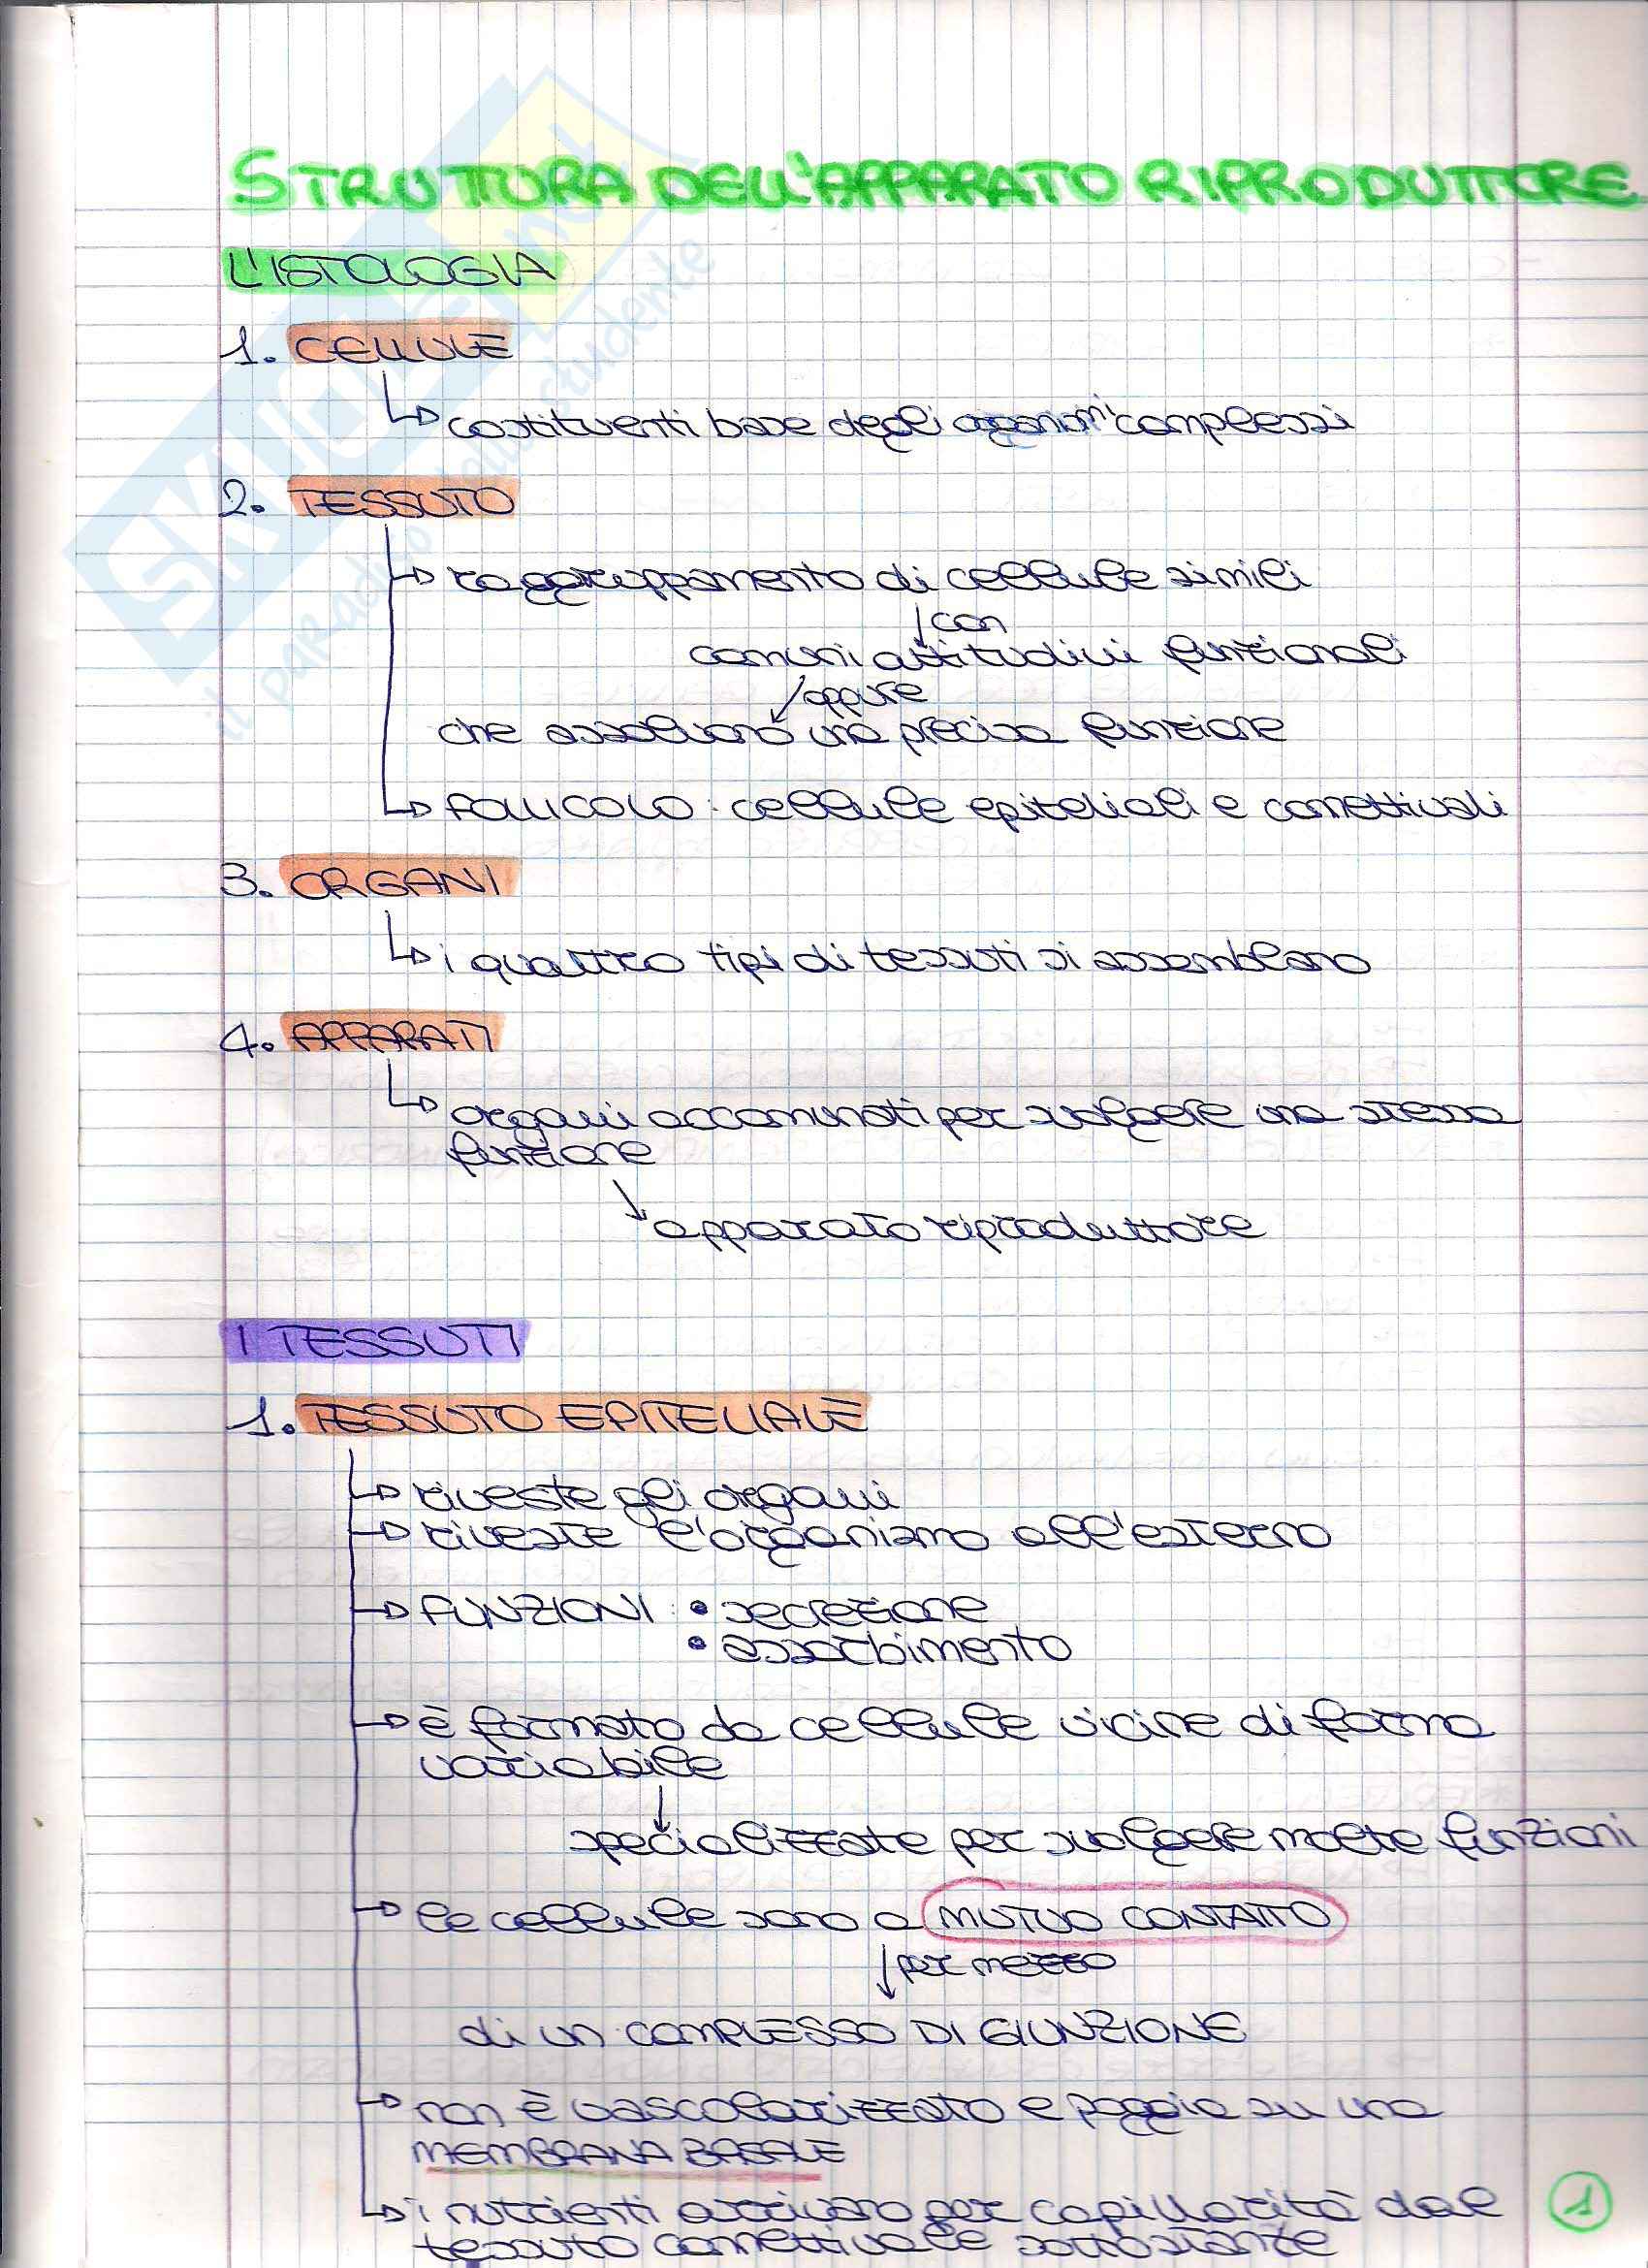 STRUTTURA DELL'APPARATO RIPRODUTTORE
L'ISTOLOGIA
1. CELLULE
costituenti base degli organismi complessi
2. TESSUTO
raggruppamento di cellule simili
con
comuni attitudini funzionali
oppure
che assolvono una precisa funzione
FOLLICOLO: cellule epiteliali e connettivali
3. ORGANI
i quattro tipi di tessuti si assemblano
4. APPARATI
organi accomunati per svolgere una stessa
funzione
apparato riproduttore
I TESSUTI
1. TESSUTO EPITELIALE
riveste gli organi
riveste l'organismo all'esterno
FUNZIONI: • secrezione
• assorbimento
è formato da cellule vicine di forma
variabile
specializzate per svolgere molte funzioni
le cellule sono a MUTUO CONTATTO
per mezzo
di un COMPLESSO DI GIUNZIONE
non è vascolarizzato e poggia su una
MEMBRANA BASALE
i nutrienti arrivano per capillarità dal
tessuto connettivale sottostante
1
SKUOLA.net
il paradiso dello studente